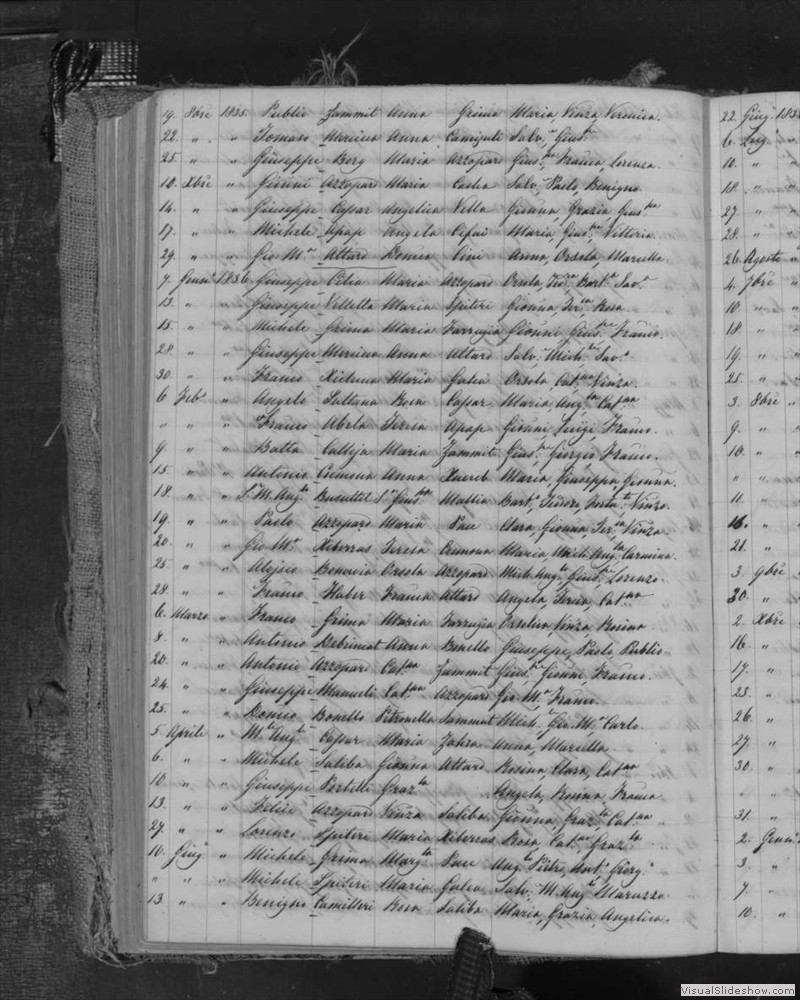 19. 8bre 1835. Publio Zammit Anna Grima Maria, Vinza, Veronica.
22. " " Tomaso Mercieca Anna Camizuli Salv.e Gius.e
25. " " Giuseppe Borg Maria Azzopard Gius.pa Franca, Lorenza.
10. Xbre " Gionni Azzopar Maria Salv.e Paolo, Benigno.
14. " " Giuseppe Cassar Angelica Vella Gionna, Grazia Gius.pa
17. " " Michele Apap Angela Cefai Maria, Gius.pa Vittoria.
29. " " Gio M.a Attard Domca Cini Anna, Orsola, Marcella.
7. Genn.o 1836. Giuseppe Maria Azzopard Orsola,
13. " " Giuseppe Velletta Maria Spiteri Gionna, Ter.sa Rosa
15. " " Michele Grima Maria Farrugia Gionni, Gius.pe Franco.
28. " " Giuseppe Mercieca Anna Attard Salv.e Mich.le Sav.o
30. " " Franco Xicluna Maria Galea Orsola, Cat.na Vinza.
6. Feb.o " Angelo Sultana Rosa Cassar Maria, Aug.ta Cat.na
" " " Franco Abela Teresa Apap Gionni, Luigi, Franco.
9. " " Batta Calleja Maria Zammit Gius.e Giorgio, Franco.
15. " " Antonio Cremona Anna Xuereb Maria, Giuseppa, Gionna.
18. " " S.r M. Aug.lo Busuttil S.ra Gius.pa Mallia Bart.o Vinzo.
19. " " Paolo Azzopard Maria Pace Clara, Gionna, Ter.sa Vinza.
20. " " Gio M.a Xiberras Teresa Cremona Maria, Mich. Ang.lo Carmina.
25. " " Alojsio Bonavia Orsola Azzopard Mich. Ang.lo Gius.e Lorenzo.
28. " " Franco Haber Franca Attard Angela, Teresa, Cat.na
6. Marzo " Franco Grima Maria Farrugia Orsola, Vinza, Rosina.
8. " " Antonio Debrincat Anna Bonello Giuseppe, Paolo Publio
20. " " Antonio Azzopard Cat.na Zammit Gius.e Gionni, Franco.
24. " " Giuseppe Manueli Cat.na Azzopard Gio M.a Franco.
25. " " Domco Bonello Petronella Sammut Mich.le Gio. M.a Carlo
5. Aprile " M.le Ang.lo Cassar Maria Zahra Anna, Marcella.
6. " " Michele Saliba Gionna Attard Rosina, Clara, Cat.na
10. " " Giuseppe Portelli Graz.la Angela, Rosina, Franca.
13. " " Felice Azzopard Vinza Saliba Gionna, Graz.la Cat.na
27. " " Lorenzo Spiteri Maria Xiberras Rosa, Cat.na Graz.la
10. Giug.o " Michele Grima Marg.ta Pace Aug.to Pietro, Ant.o Giorg.o
" " " Michele Spiteri Maria Galea Salv.e M. Ang.lo Maruzza
13. " " Benigno Camilleri Rosa Saliba Maria, Grazia, Angelica.
22. Giug.o 183
6. Lug.o
10. "
18. "
27. "
28. "
26. Agosto "
4. 7bre "
10. "
18. "
19. "
25. "
3. 8bre "
9. "
10. "
" "
11. "
16. "
21. "
3. 9bre "
30. "
2. Xbre "
16. "
17. "
23. "
26. "
27. "
30. "
" "
31. "
2. Genn.o
3. "
7. "
10. "
VisualSlideshow.com